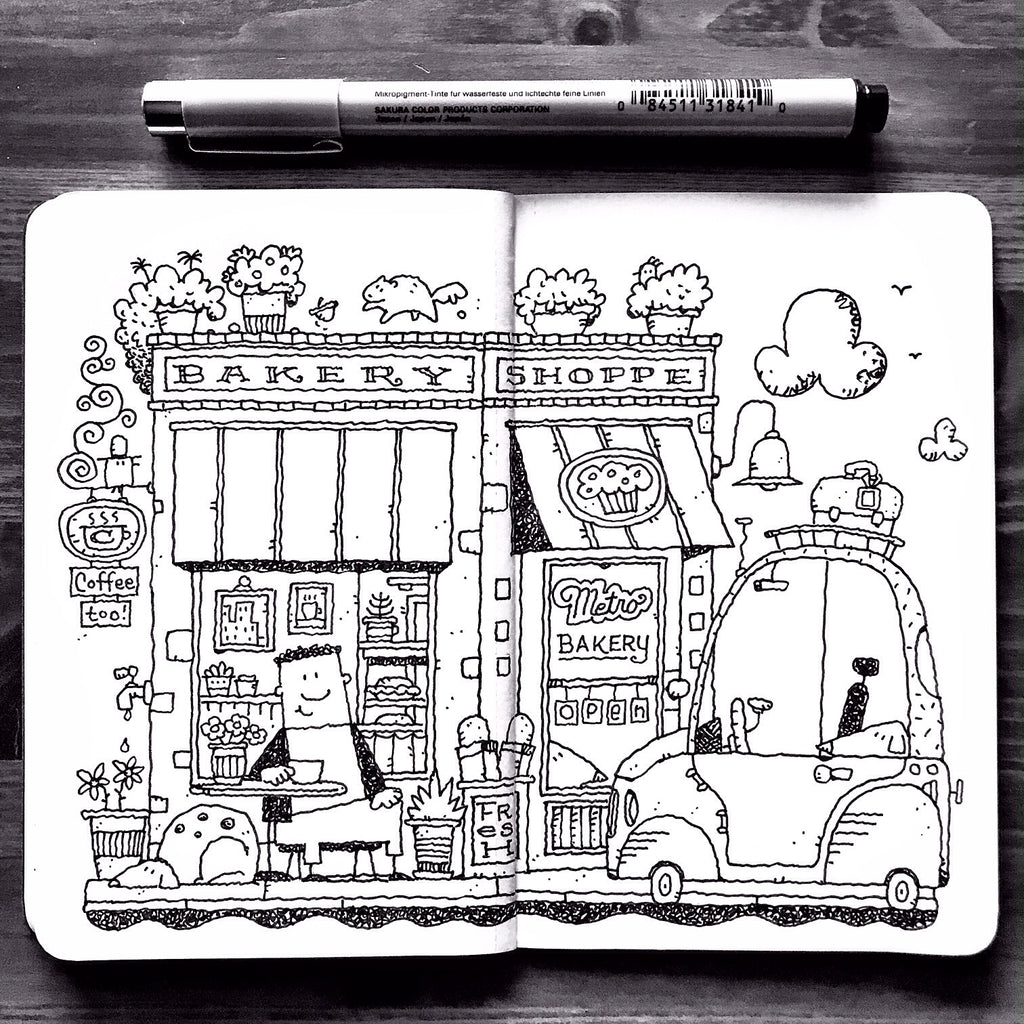 Mikropigment-Tinte für wasserfeste und lichtechte feine Linien
SAKURA COLOR PRODUCTS CORPORATION
Japan / Japon / Japón
0 84511 31841 0
BAKERY SHOPPE
Coffee
too!
Metro
BAKERY
OPen
FR
eS
H